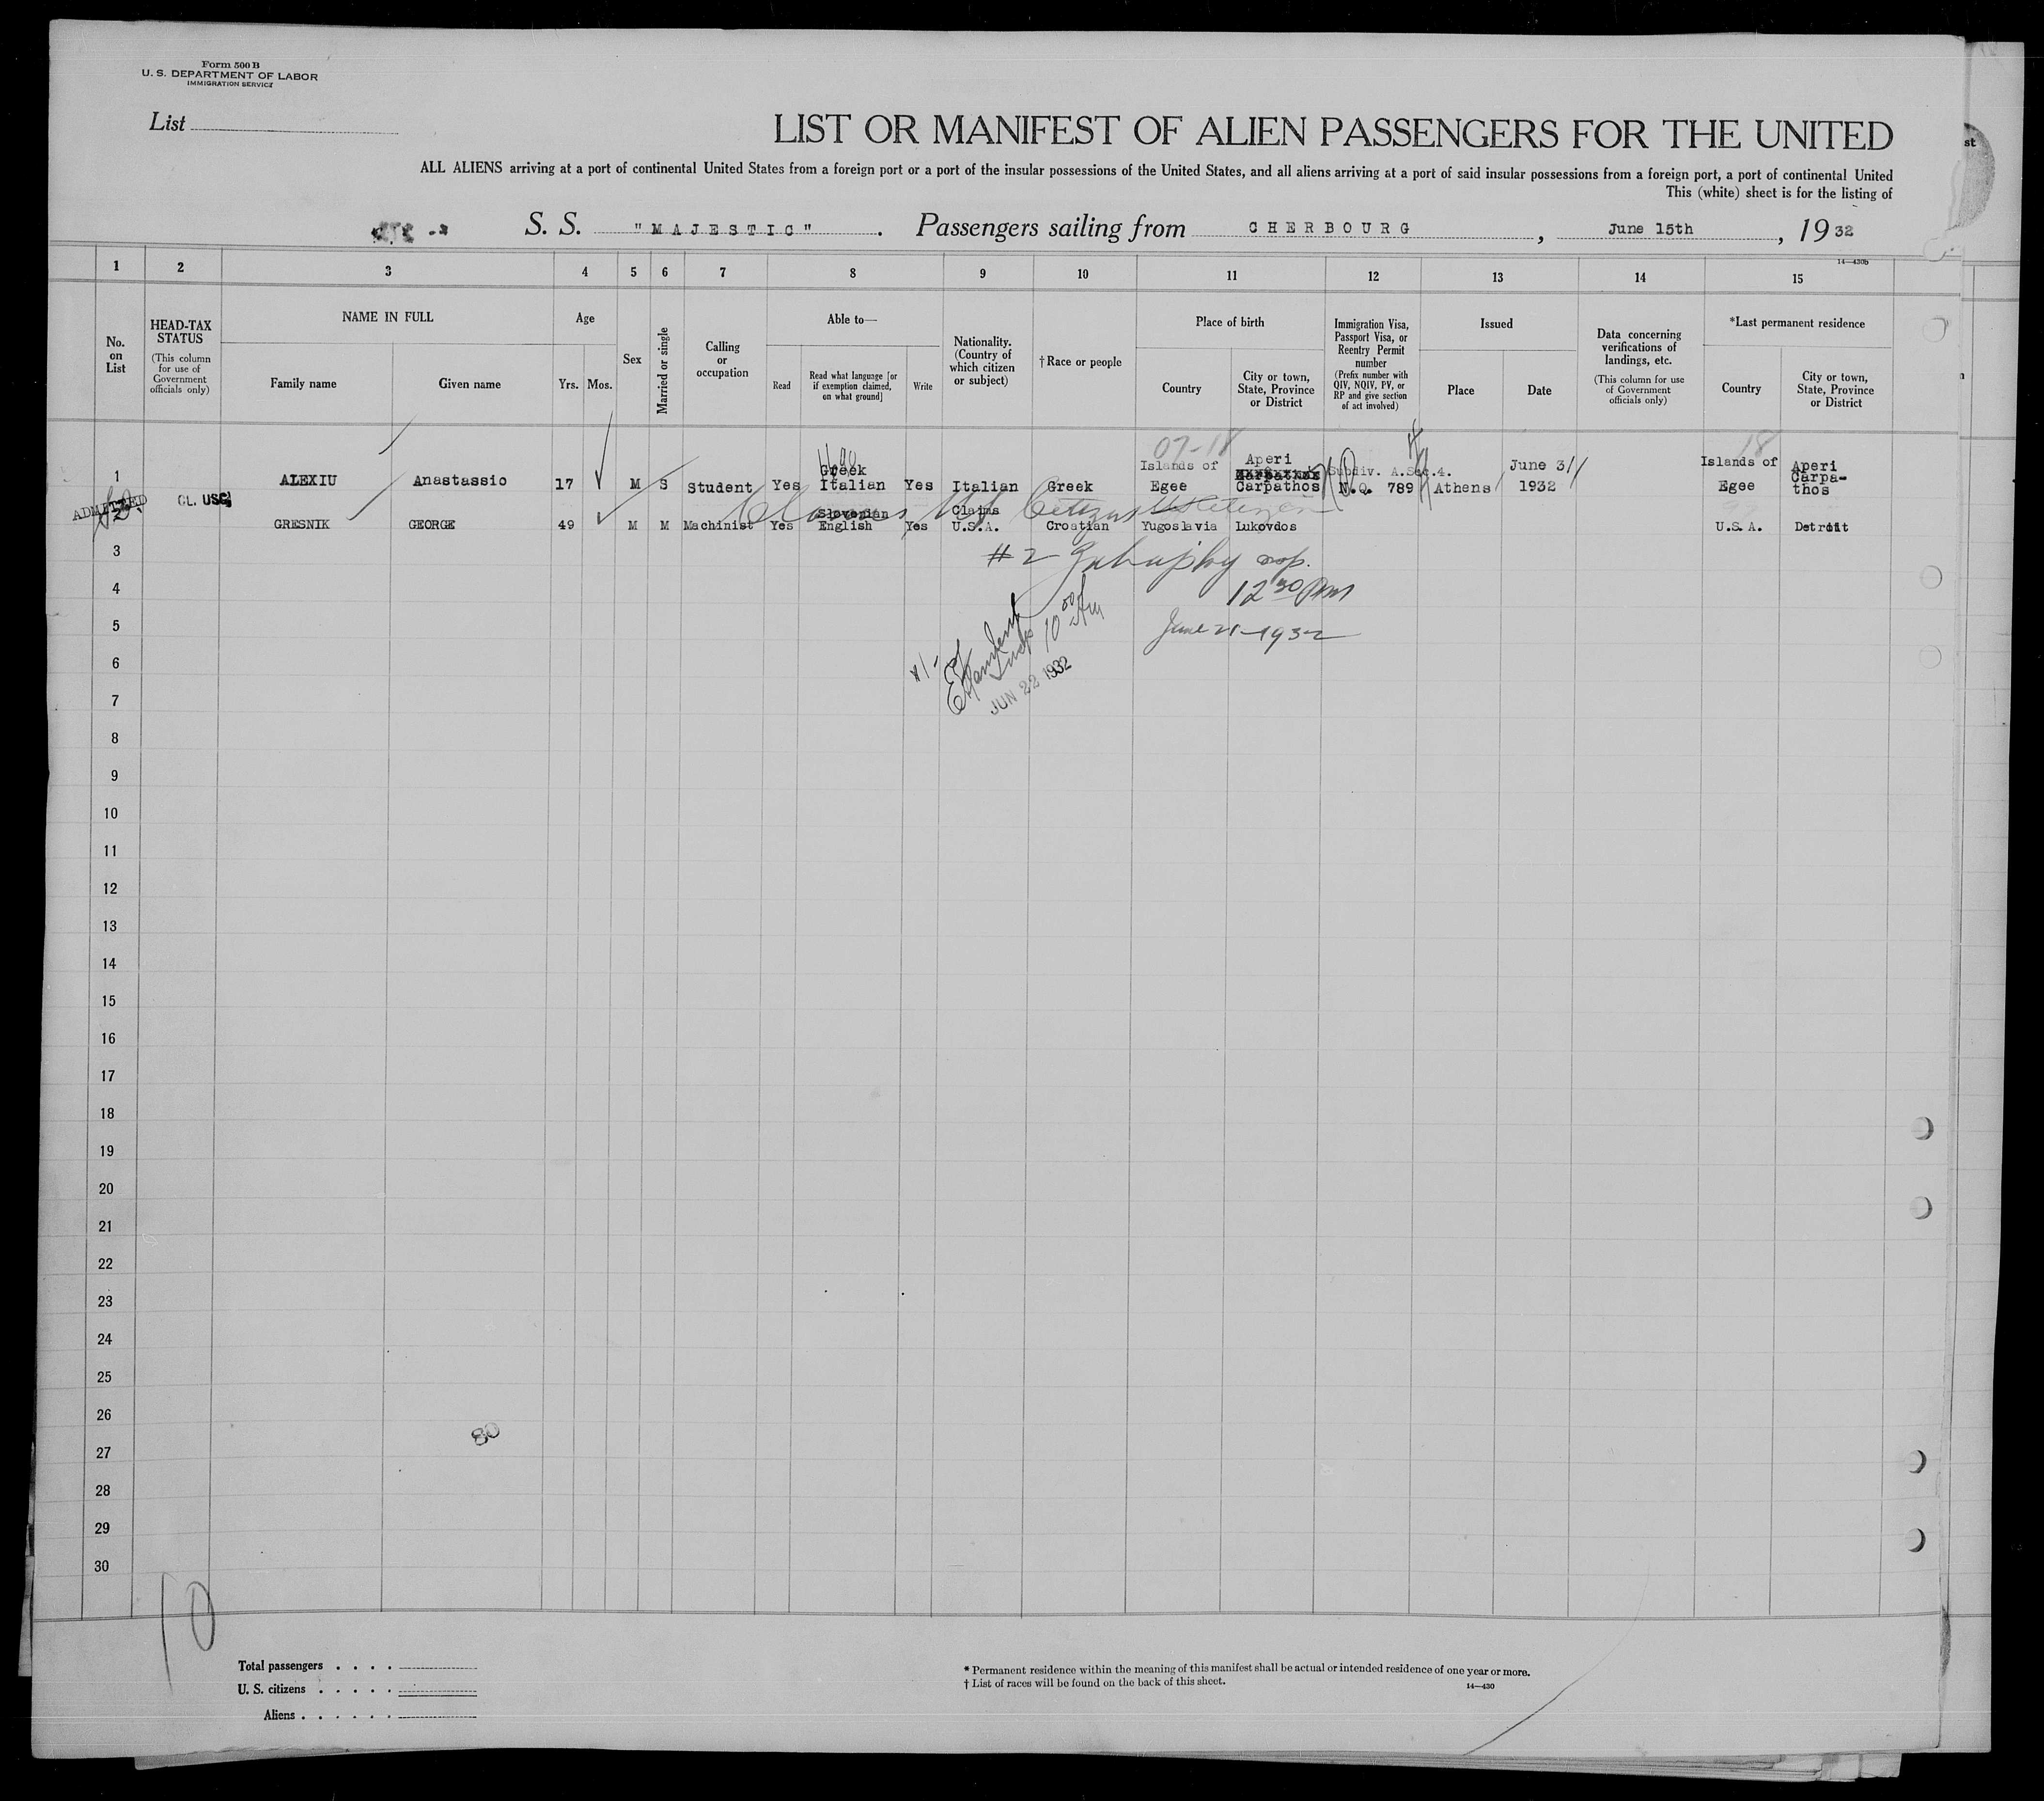 Form 500 B
U. S. DEPARTMENT OF LABOR
IMMIGRATION SERVICE
List
LIST OR MANIFEST OF ALIEN PASSENGERS FOR THE UNITED
ALL ALIENS arriving at a port of continental United States from a foreign port or a port of the insular possessions of the United States, and all aliens arriving at a port of said insular possessions from a foreign port, a port of continental United
This (white) sheet is for the listing of
S. S. "MAJESTIC". Passengers sailing from CHERBOURG, June 15th, 1932
14—430b
1 2 3 4 5 6 7 8 9 10 11 12 13 14 15
No. on List
HEAD-TAX STATUS
(This column for use of Government officials only)
NAME IN FULL
Family name
Given name
Age
Yrs. Mos.
Sex
Married or single
Calling or occupation
Able to—
Read
Read what language [or if exemption claimed, on what ground]
Write
Nationality. (Country of which citizen or subject)
†Race or people
Place of birth
Country
City or town, State, Province or District
Immigration Visa, Passport Visa, or Reentry Permit number
(Prefix number with QIV, NQIV, PV, or RP and give section of act involved)
Issued
Place
Date
Data concerning verifications of landings, etc.
(This column for use of Government officials only)
*Last permanent residence
Country
City or town, State, Province or District
07-18
18
1 ALEXIU Anastassio 17 M S Student Yes Greek Italian Yes Italian Greek Islands of Egee Aperi Carpathos Subdiv. A.Sec.4. N.Q. 789 Athens June 3 1932 Islands of Egee Aperi Carpa-thos
ADMITTED
CL. USC
Claims US Citizen US Citizen
GRESNIK GEORGE 49 M M Machinist Yes Slovenian English Yes Claims U.S.A. Croatian Yugoslavia Lukovdos U.S.A. Detroit
3
#2
insp.
4
12 30 Pm
5
June 21-1932
10 00 Am
6
JUN 22 1932
7
8
9
10
11
12
13
14
15
16
17
18
19
20
21
22
23
24
25
26
80
27
28
29
30
10
Total passengers
U. S. citizens
Aliens
* Permanent residence within the meaning of this manifest shall be actual or intended residence of one year or more.
† List of races will be found on the back of this sheet.
14—430